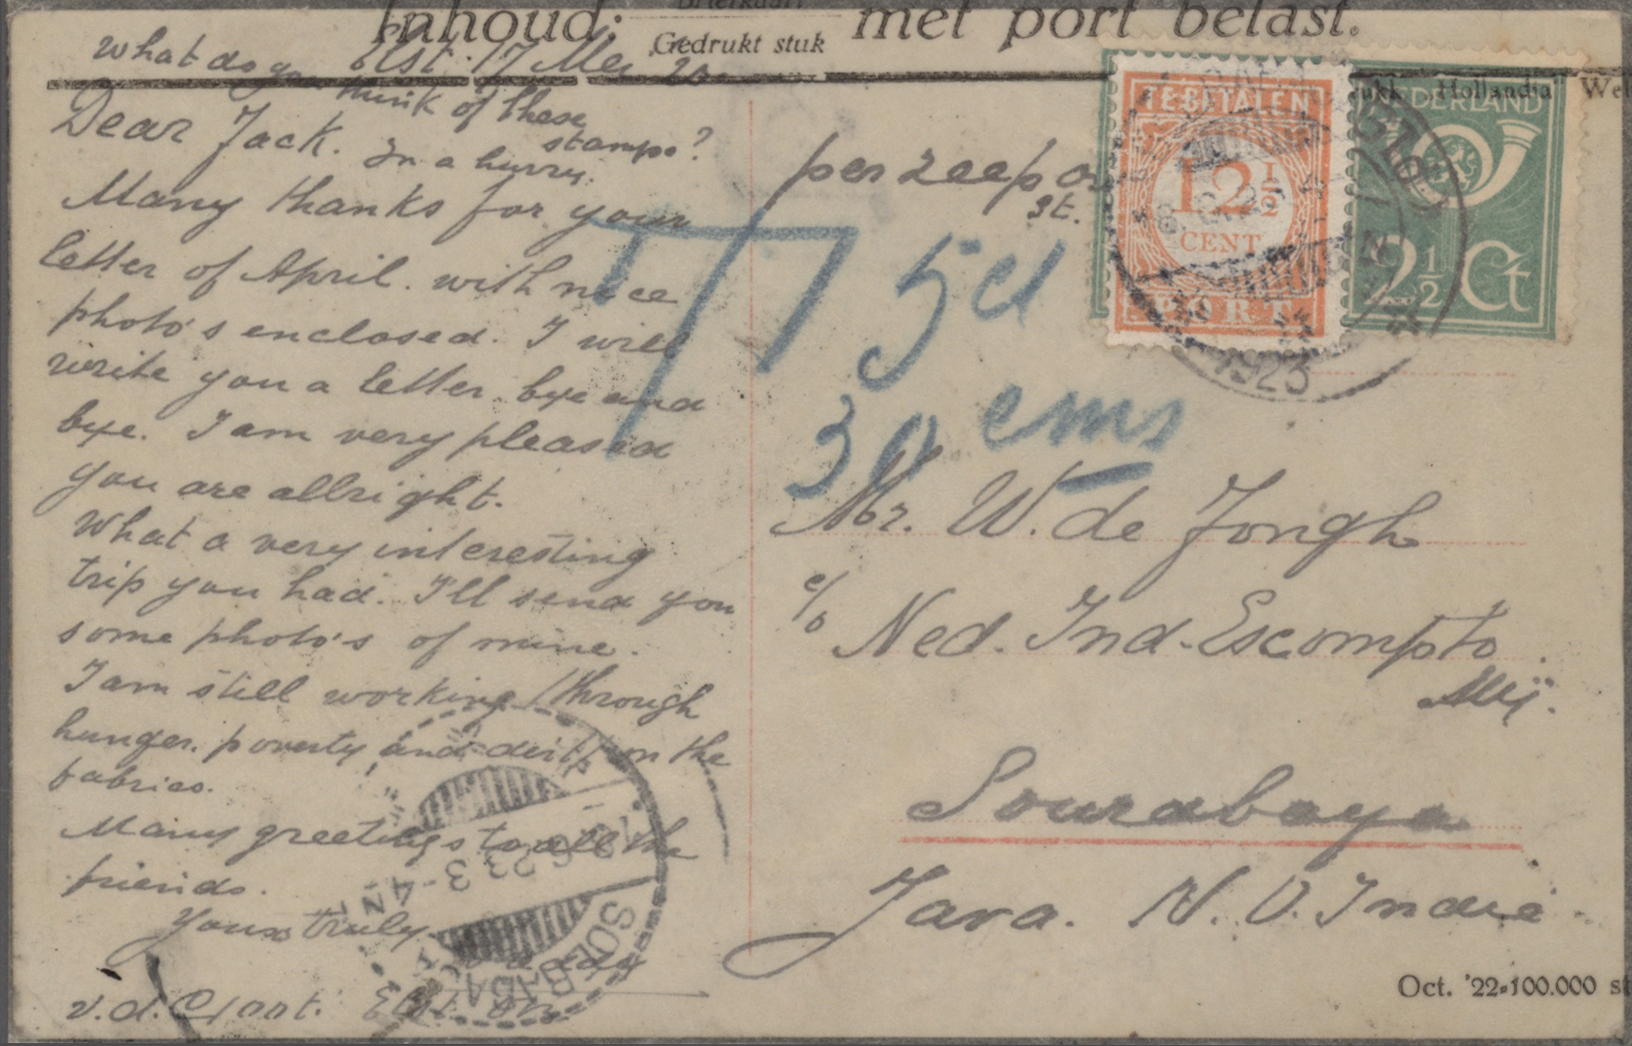 Inhoud: Briefkaart met port belast.
Gedrukt stuk
What do you Elst. 17 Mei 23
think of these
stamps?
Dear Jack. In a hurry.
Many thanks for your
letter of April. with nice
photo's enclosed. I will
write you a letter bye and
bye. I am very pleased
you are allright.
What a very interesting
trip you had. I'll send you
some photo's of mine.
I am still working (through
hunger. poverty and on the
fabries.
Many greetings to all the
friends.
Yours truly
v.d. Elst
per zeepost.
T 5 ct
30 cms
TE BETALEN
12½
CENT
PORT
NEDERLAND
2½ Ct
1923
Mr. W. de Jongh
c/o Ned. Ind. Escompto
Mij.
Sourabaya
Java. N. O. Indië
.6.23 3-4 N
SOERABAJA
Hollandia
Oct. '22-100.000 st